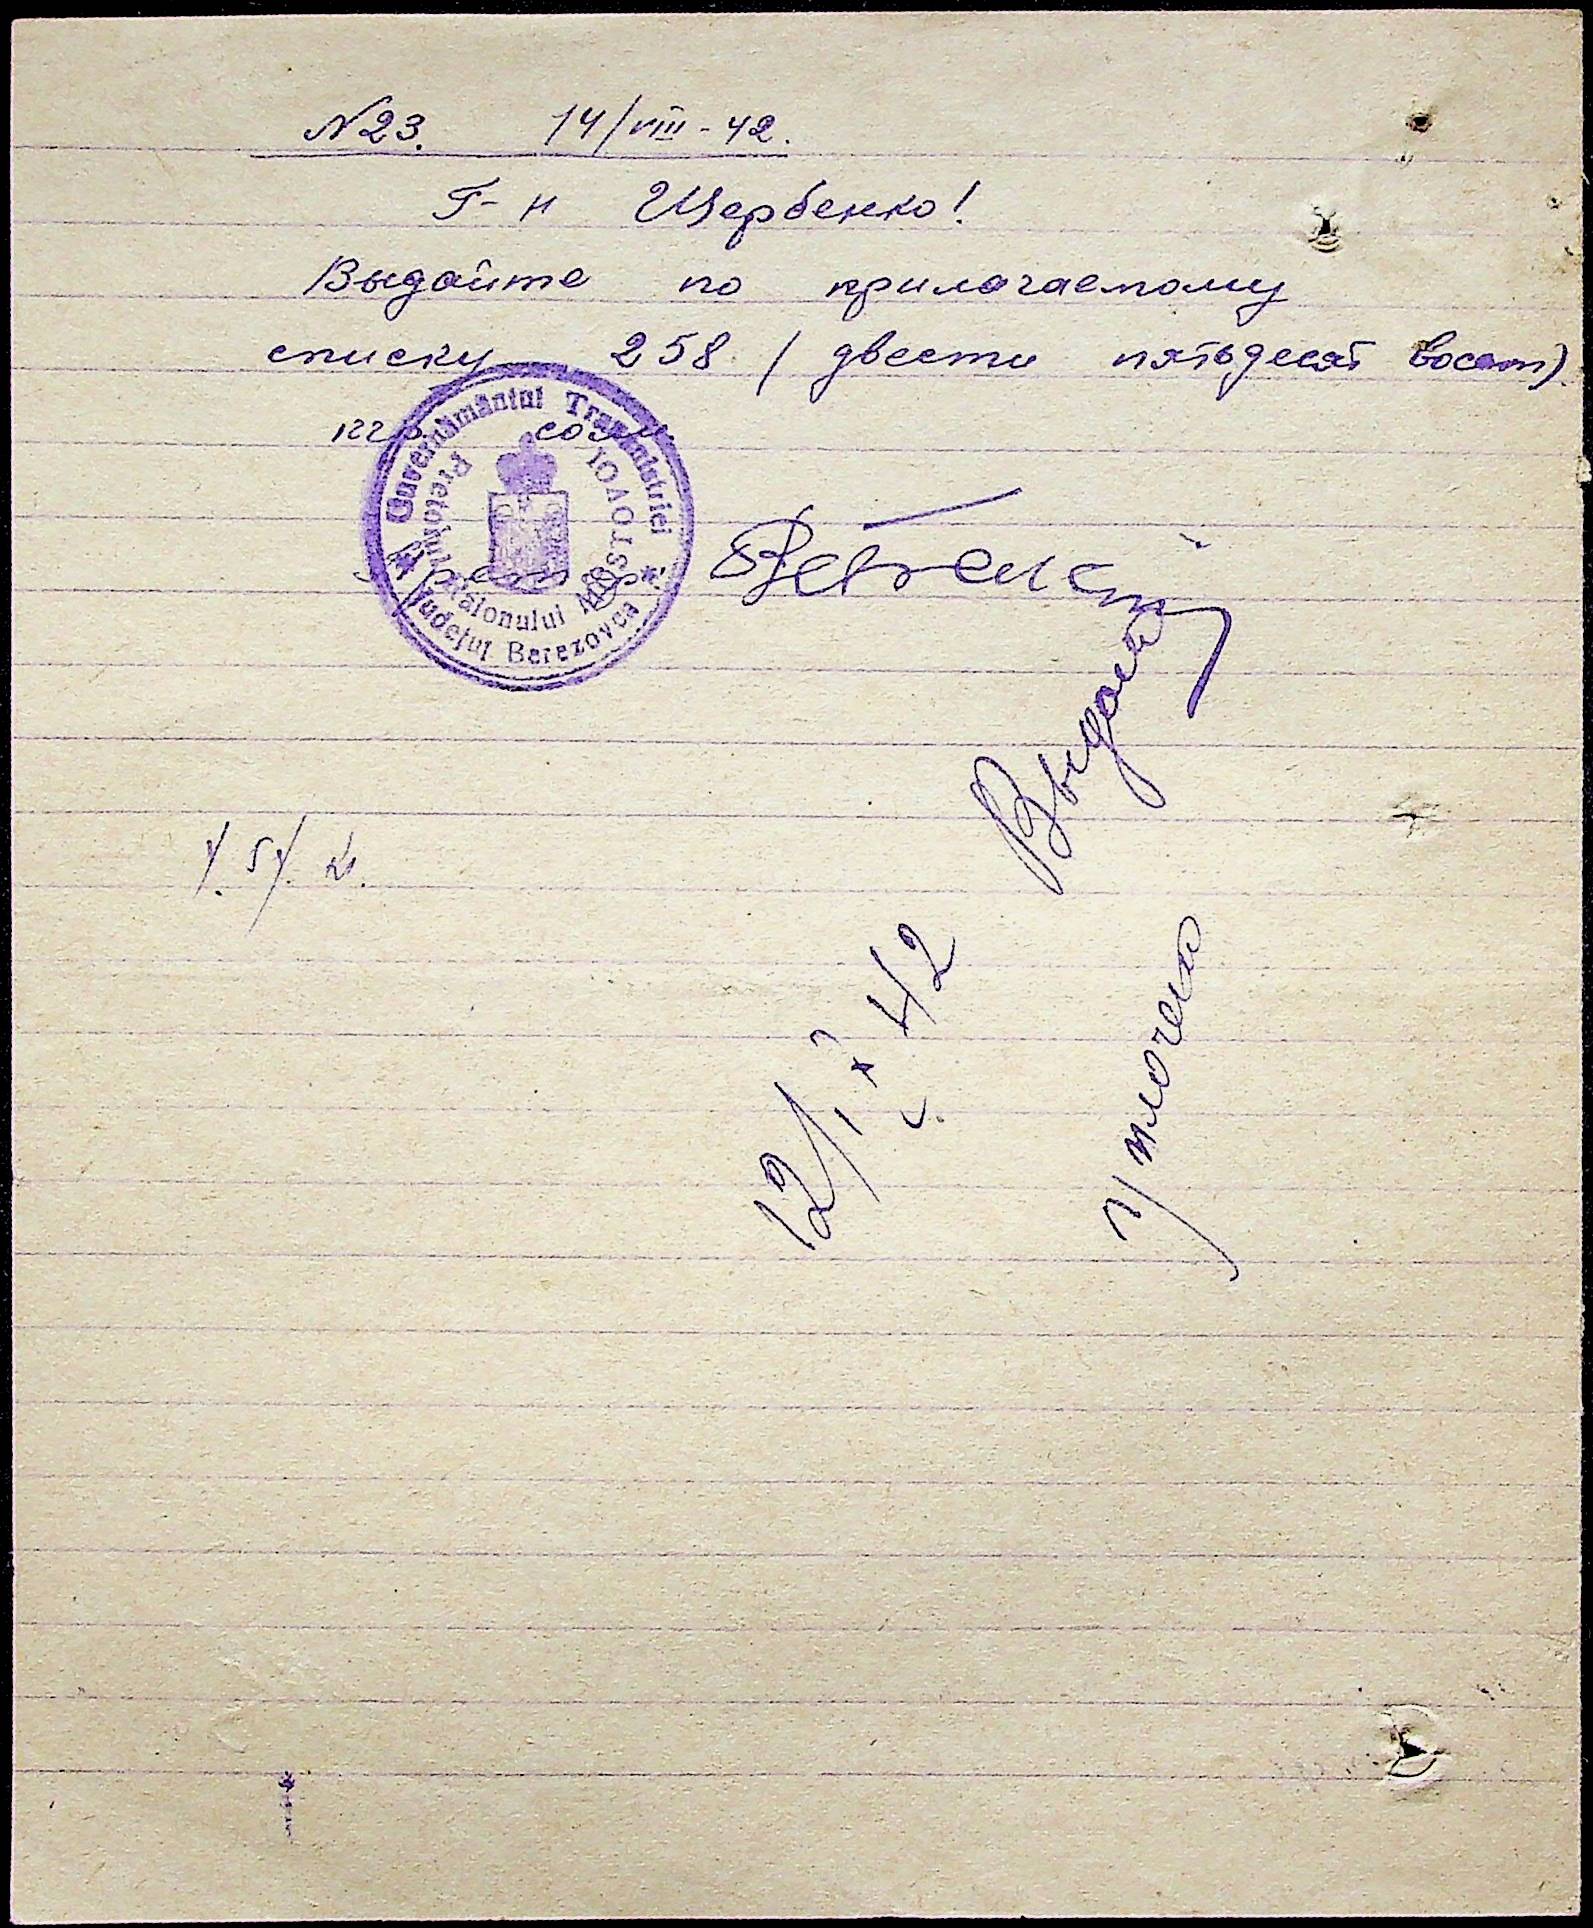 N 23. 14/VIII-42.
Г-н Щербенко!
Выдайте по прилагаемому
списку 258 (двести пятьдесят восем)
кгр. соли.
Guvernământul Transnistriei
Pretorul Raionului MOSTOVOI
Județul Berezovca
Претор
Выдать
12/IX 42
уплочено